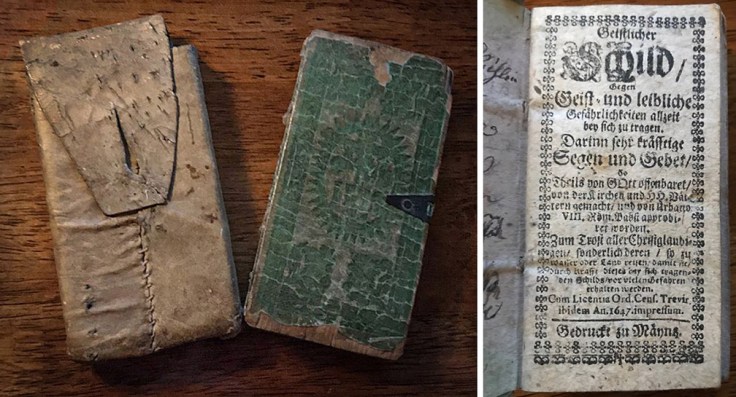 Geistlicher
Schild/
Gegen
Geist- und leibliche
Gefährlichkeiten allzeit
bey sich zu tragen.
Darinn sehr kräfftige
Segen und Gebet/
So
Theils von GOtt offenbaret/
von der Kirchen und HH. Vät-
tern gemacht/ und von Urbano
VIII. Röm. Pabst approbi-
ret worden.
Zum Trost aller Christglaubi-
gen/ sonderlich deren / so zu
Wasser oder Land reisen/ damit sie/
durch Krafft dieses bey sich tragen-
den Schilds/ vor vielen Gefahren
erhalten werden.
Cum Licentia Ord. Cens. Trevir.
ibidem An. 1647. impressum.
Gedruckt zu Mäyntz.